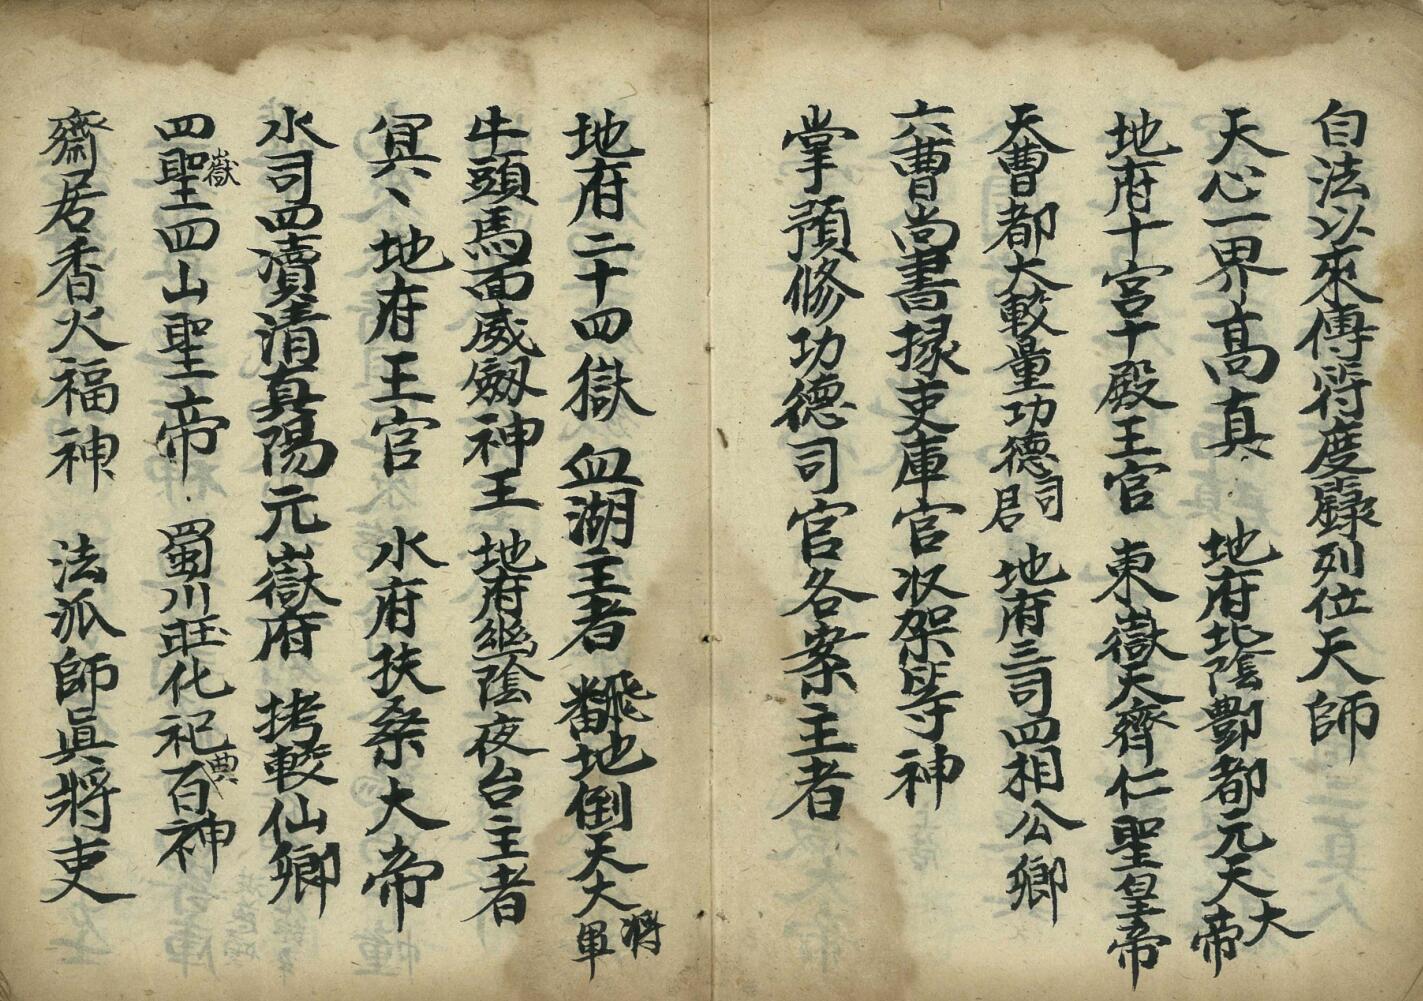 自法以來傳符度籙列位天師
天心一界高真 地府北陰酆都元天大帝
地府十宮十殿王官 東嶽天齊仁聖皇帝
天曹都大較量功德司君 地府三司四相公卿
六曹尚書掾吏庫官收架等神
掌預修功德司官各案主者
地府二十四獄 血湖王者 飛地倒天大將軍
牛頭馬面威劔神王 地府幽陰夜台主者
冥〻地府王官 水府扶桑大帝
水司四瀆清真陽元嶽府 拷較仙卿
四嶽聖四山聖帝 蜀川旺化祀典百神
齋居香火福神 法派師眞將吏